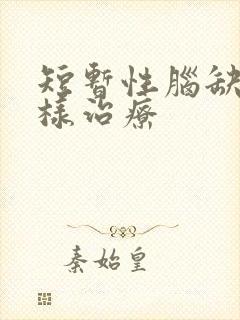 短暫性腦缺
樣治療
秦始皇